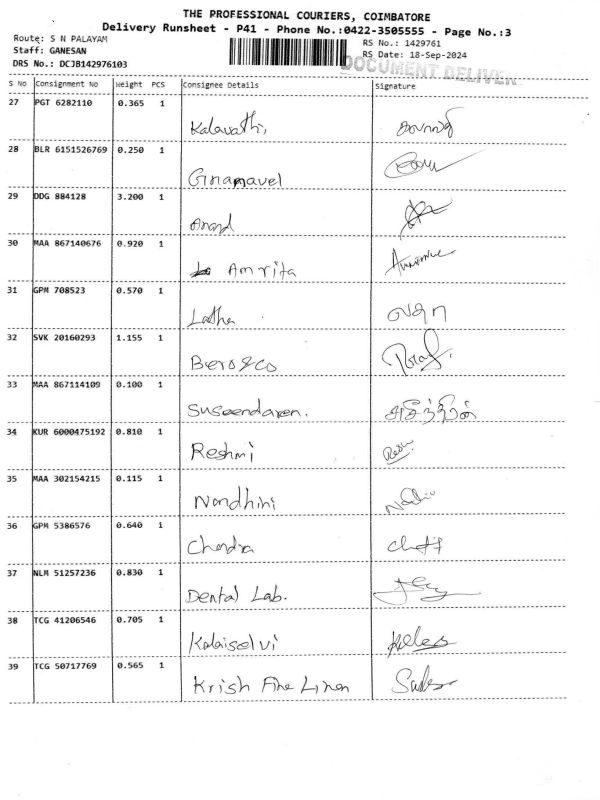 THE PROFESSIONAL COURIERS, COIMBATORE
Delivery Runsheet - P41 - Phone No.:0422-3505555 - Page No.:3
Route: S N PALAYAM
RS No.: 1429761
Staff: GANESAN
RS Date: 18-Sep-2024
DRS No.: DCJB142976103
DOCUMENT DELIVER
S No Consignment No Weight PCS Consignee Details Signature
27 PGT 6282110 0.365 1
Kalavathi,
28 BLR 6151526769 0.250 1
Gnanavel
29 DDG 884128 3.200 1
Anand
30 MAA 867140676 0.920 1
Amrita
31 GPM 708523 0.570 1
Latha லதா
32 SVK 20160293 1.155 1
Bero & co
33 MAA 867114109 0.100 1
Suseendaren.
34 KUR 6000475192 0.810 1
Reshmi
35 MAA 302154215 0.115 1
Nandhini
36 GPM 5386576 0.640 1
Chandra
37 NLM 51257236 0.830 1
Dental Lab.
38 TCG 41206546 0.705 1
Kalaiselvi
39 TCG 50717769 0.565 1
Krish Fine Linen